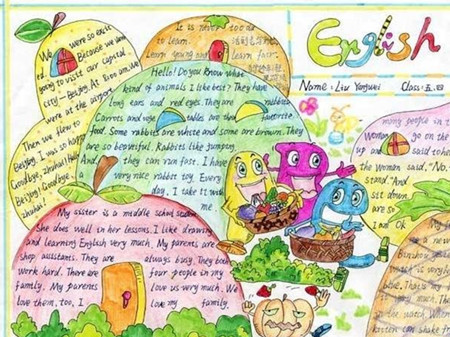 English
Name: Liu Yangwei Class: 五.四
We were so excit
ed. Because we were
going to visit our capital
city — Beijing. At 8:00 am. We
were at the airport.
Then we flew to
Beijing. I was so happy
Goodbye, zhuhai! Hello
Beijing! Goodbye
zhuhai!
It is never too old
to learn.
Learn young and learn fair.
Hello! Do you know what
kind of animals I like best? They have
long ears and red eyes. They are rabbits.
Carrots and vege tables are their favourite
food. Some rabbits are white and some are brown. They
are so beautiful. Rabbits like jumping.
And they can run fast. I have
a very nice rabbit toy. Every
day, I take it with
me.
My sister is a middle school
She does well in her lessons. I like drawing
and learning English very much. My parents are
shop assistants. They are always busy. They both
work hard. There are four people in my
family. My parents love us very much. We
love them, too. I love my family.
many people in t
Woman go on the
up and said to he
the Woman said, "No,
stand." And
sit down
are so
I am OK
My
a new
is very
very much. Th
the match. When
kitten can shake